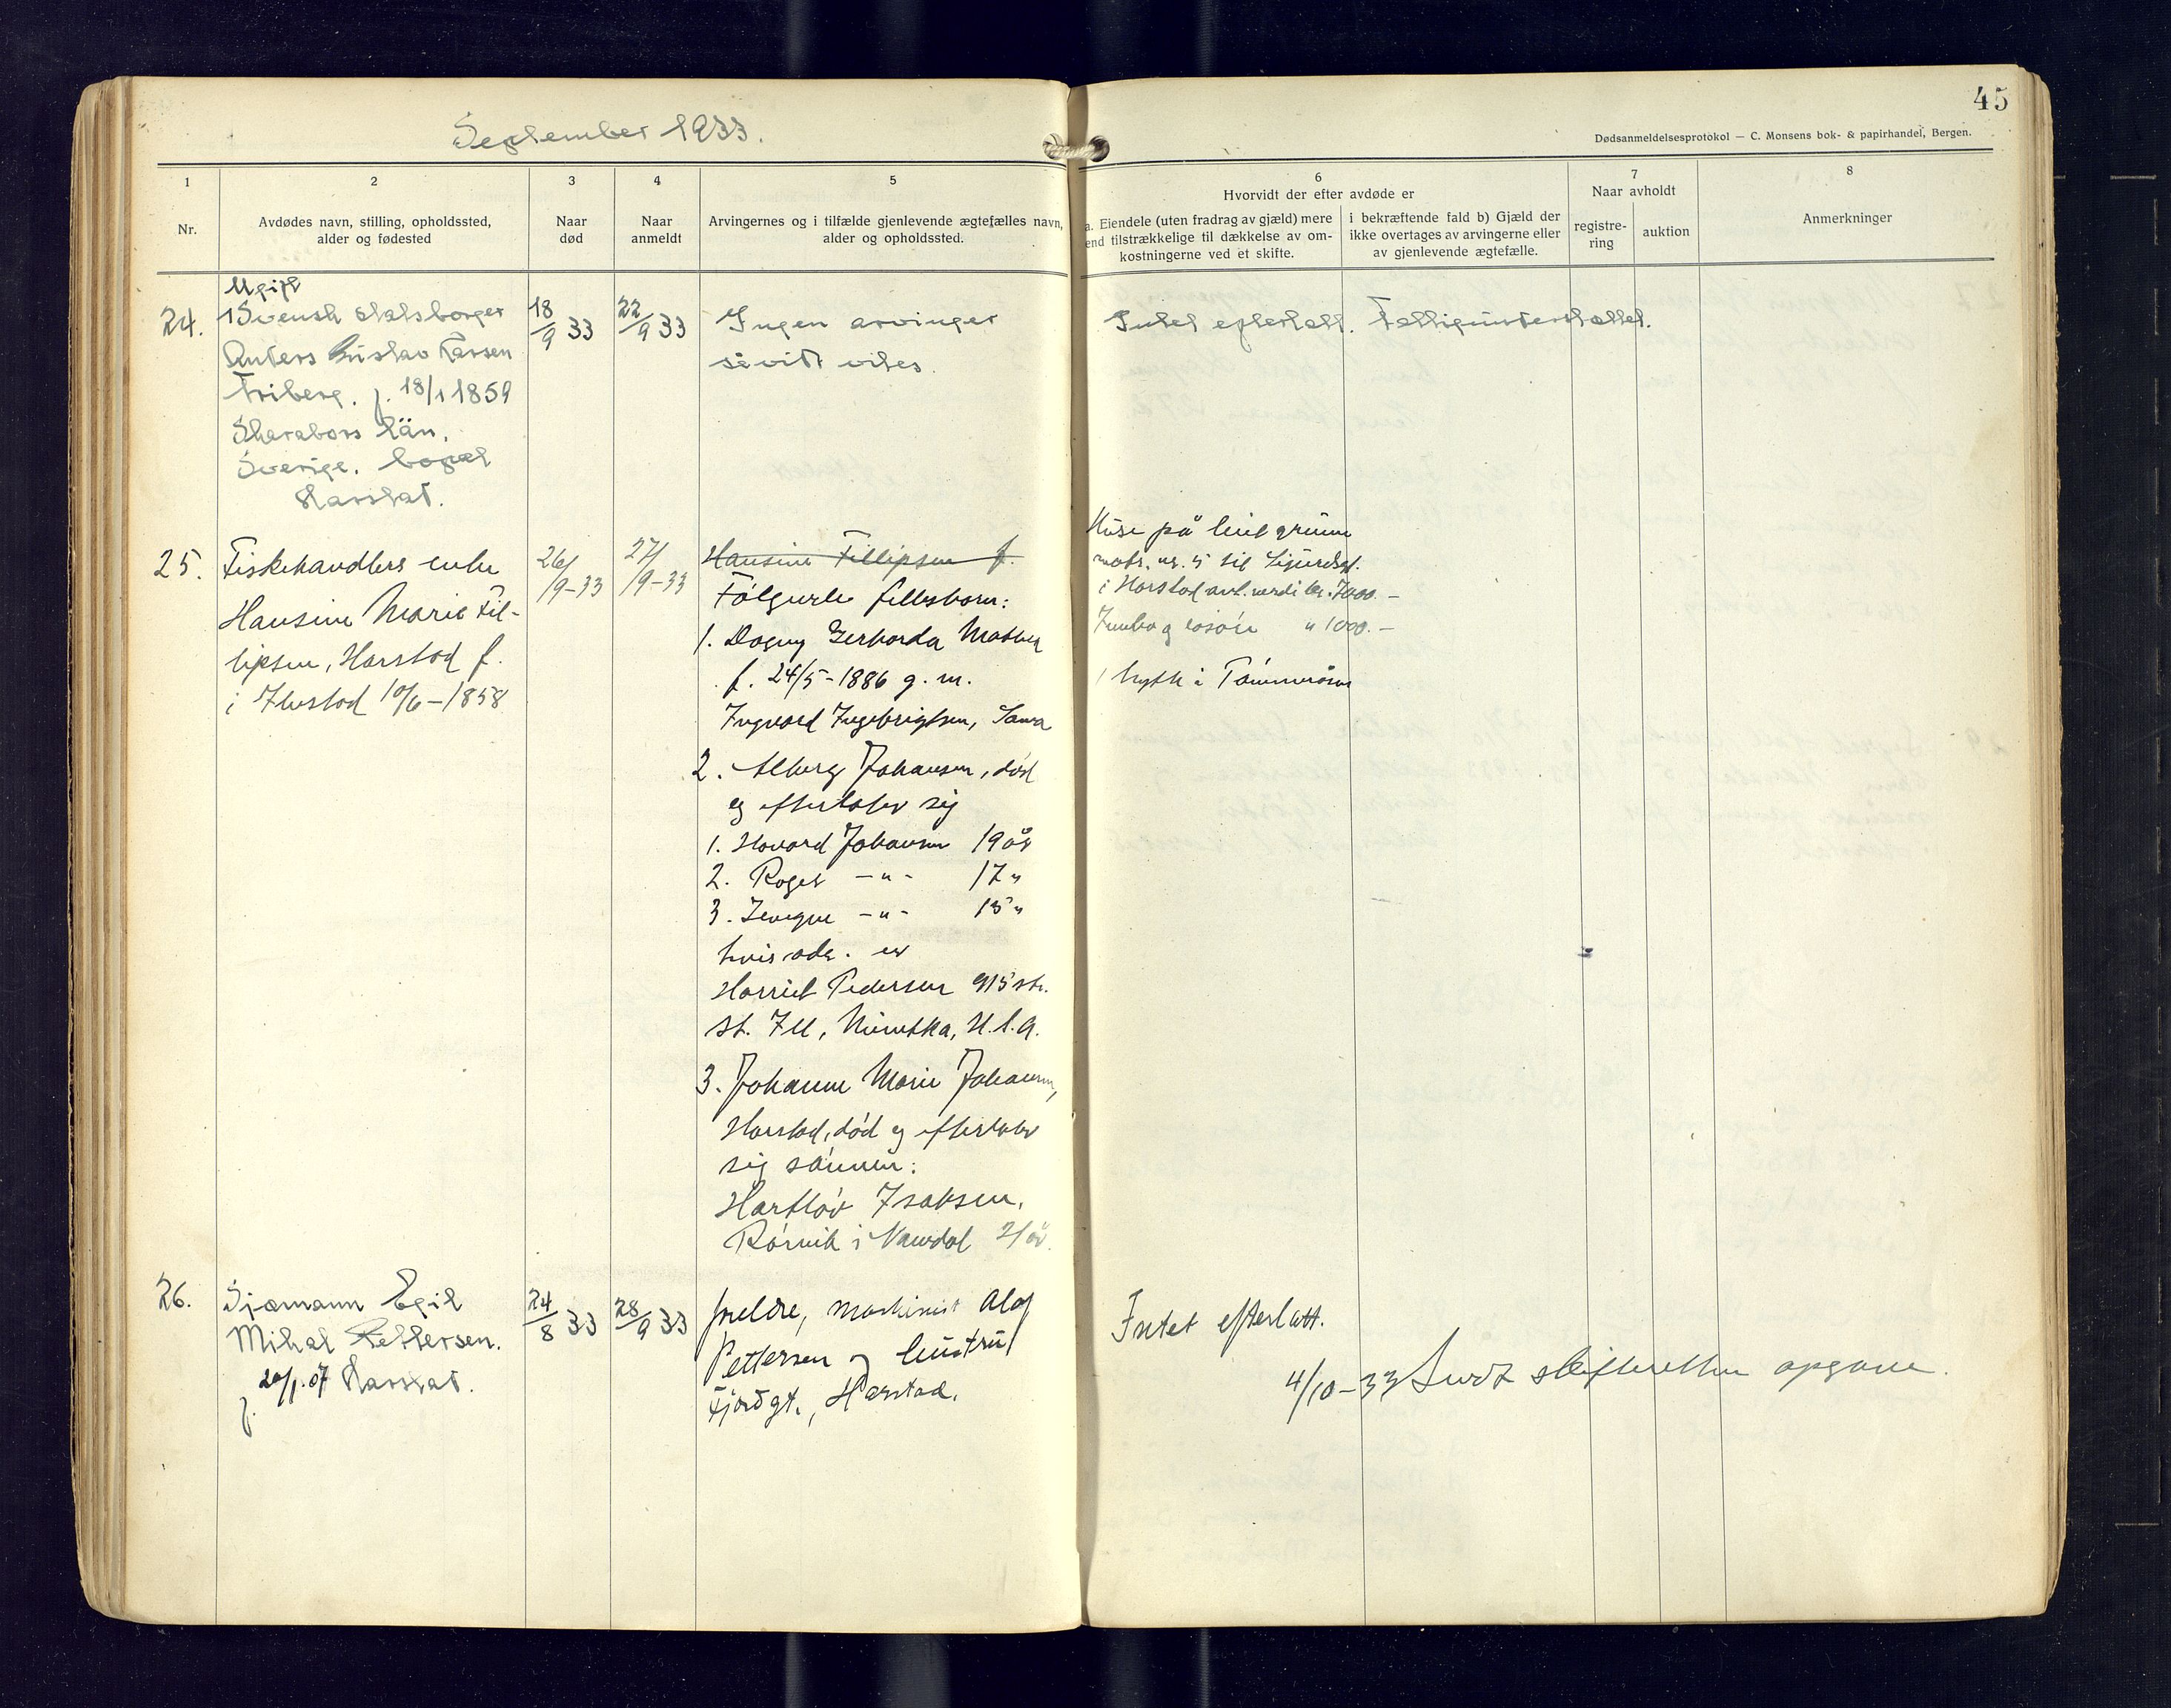 45
September 1933.
Dødsanmeldelsesprotokol — C. Monsens bok- & papirhandel, Bergen.
1
2
3
4
5
6
7
8
Nr.
Avdødes navn, stilling, opholdssted,
alder og fødested
Naar
død
Naar
anmeldt
Arvingernes og i tilfælde gjenlevende ægtefælles navn,
alder og opholdssted.
Hvorvidt der efter avdøde er
a. Eiendele (uten fradrag av gjæld) mere
end tilstrækkelige til dækkelse av om-
kostningerne ved et skifte.
i bekræftende fald b) Gjæld der
ikke overtages av arvingerne eller
av gjenlevende ægtefælle.
Naar avholdt
registre-
ring
auktion
Anmerkninger
24.
Ugift
Svensk statsborger
Anders Gustav Larsen
Friberg. f. 18/1 1859
Skarabors län,
Sverige. bopæl
Harstad.
18/9 33
22/9 33
Ingen arvinger
såvidt vites.
Intet efterlatt. Fattigunderstøttet.
25.
Fiskehandlers enke
Hansine Marie Fil-
lipsen, Harstad f.
i Ibestad 10/6-1858
26/9-33
27/9-33
Hansine Fillipsen f.
Følgende fellesbarn:
1. Dagny Gerharda
f. 24/5-1886 g. m.
Ingvard Ingebrigtsen,
2. Johansen, død
og efterlater sig
1. Havard Johansen 19 år
2. Roger -"- 17 "
3. -"- 15 "
hvis adr. er
Harriet Pedersen 915 str.
U.S.A.
3. Johanne Marie Johansen,
Harstad, død og efterlater
sig sønnen:
Hartløv Isaksen,
Rørvik i Namdal 21 år.
Huse på leiet grunn
matr. nr. 5 til Sigurdsgt.
i Harstad ant. verdi kr. 7000.-
Innbo og løsøre " 1000.-
1 hytte i
26.
Sjømann Egil
Mikal Pettersen.
f. 20/1.07 Harstad.
24/8 33
28/9 33
Foreldre, maskinist Olaf
Pettersen og hustru
Fjordgt., Harstad.
Intet efterlatt.
4/10-33 Sendt skifteretten opgave.